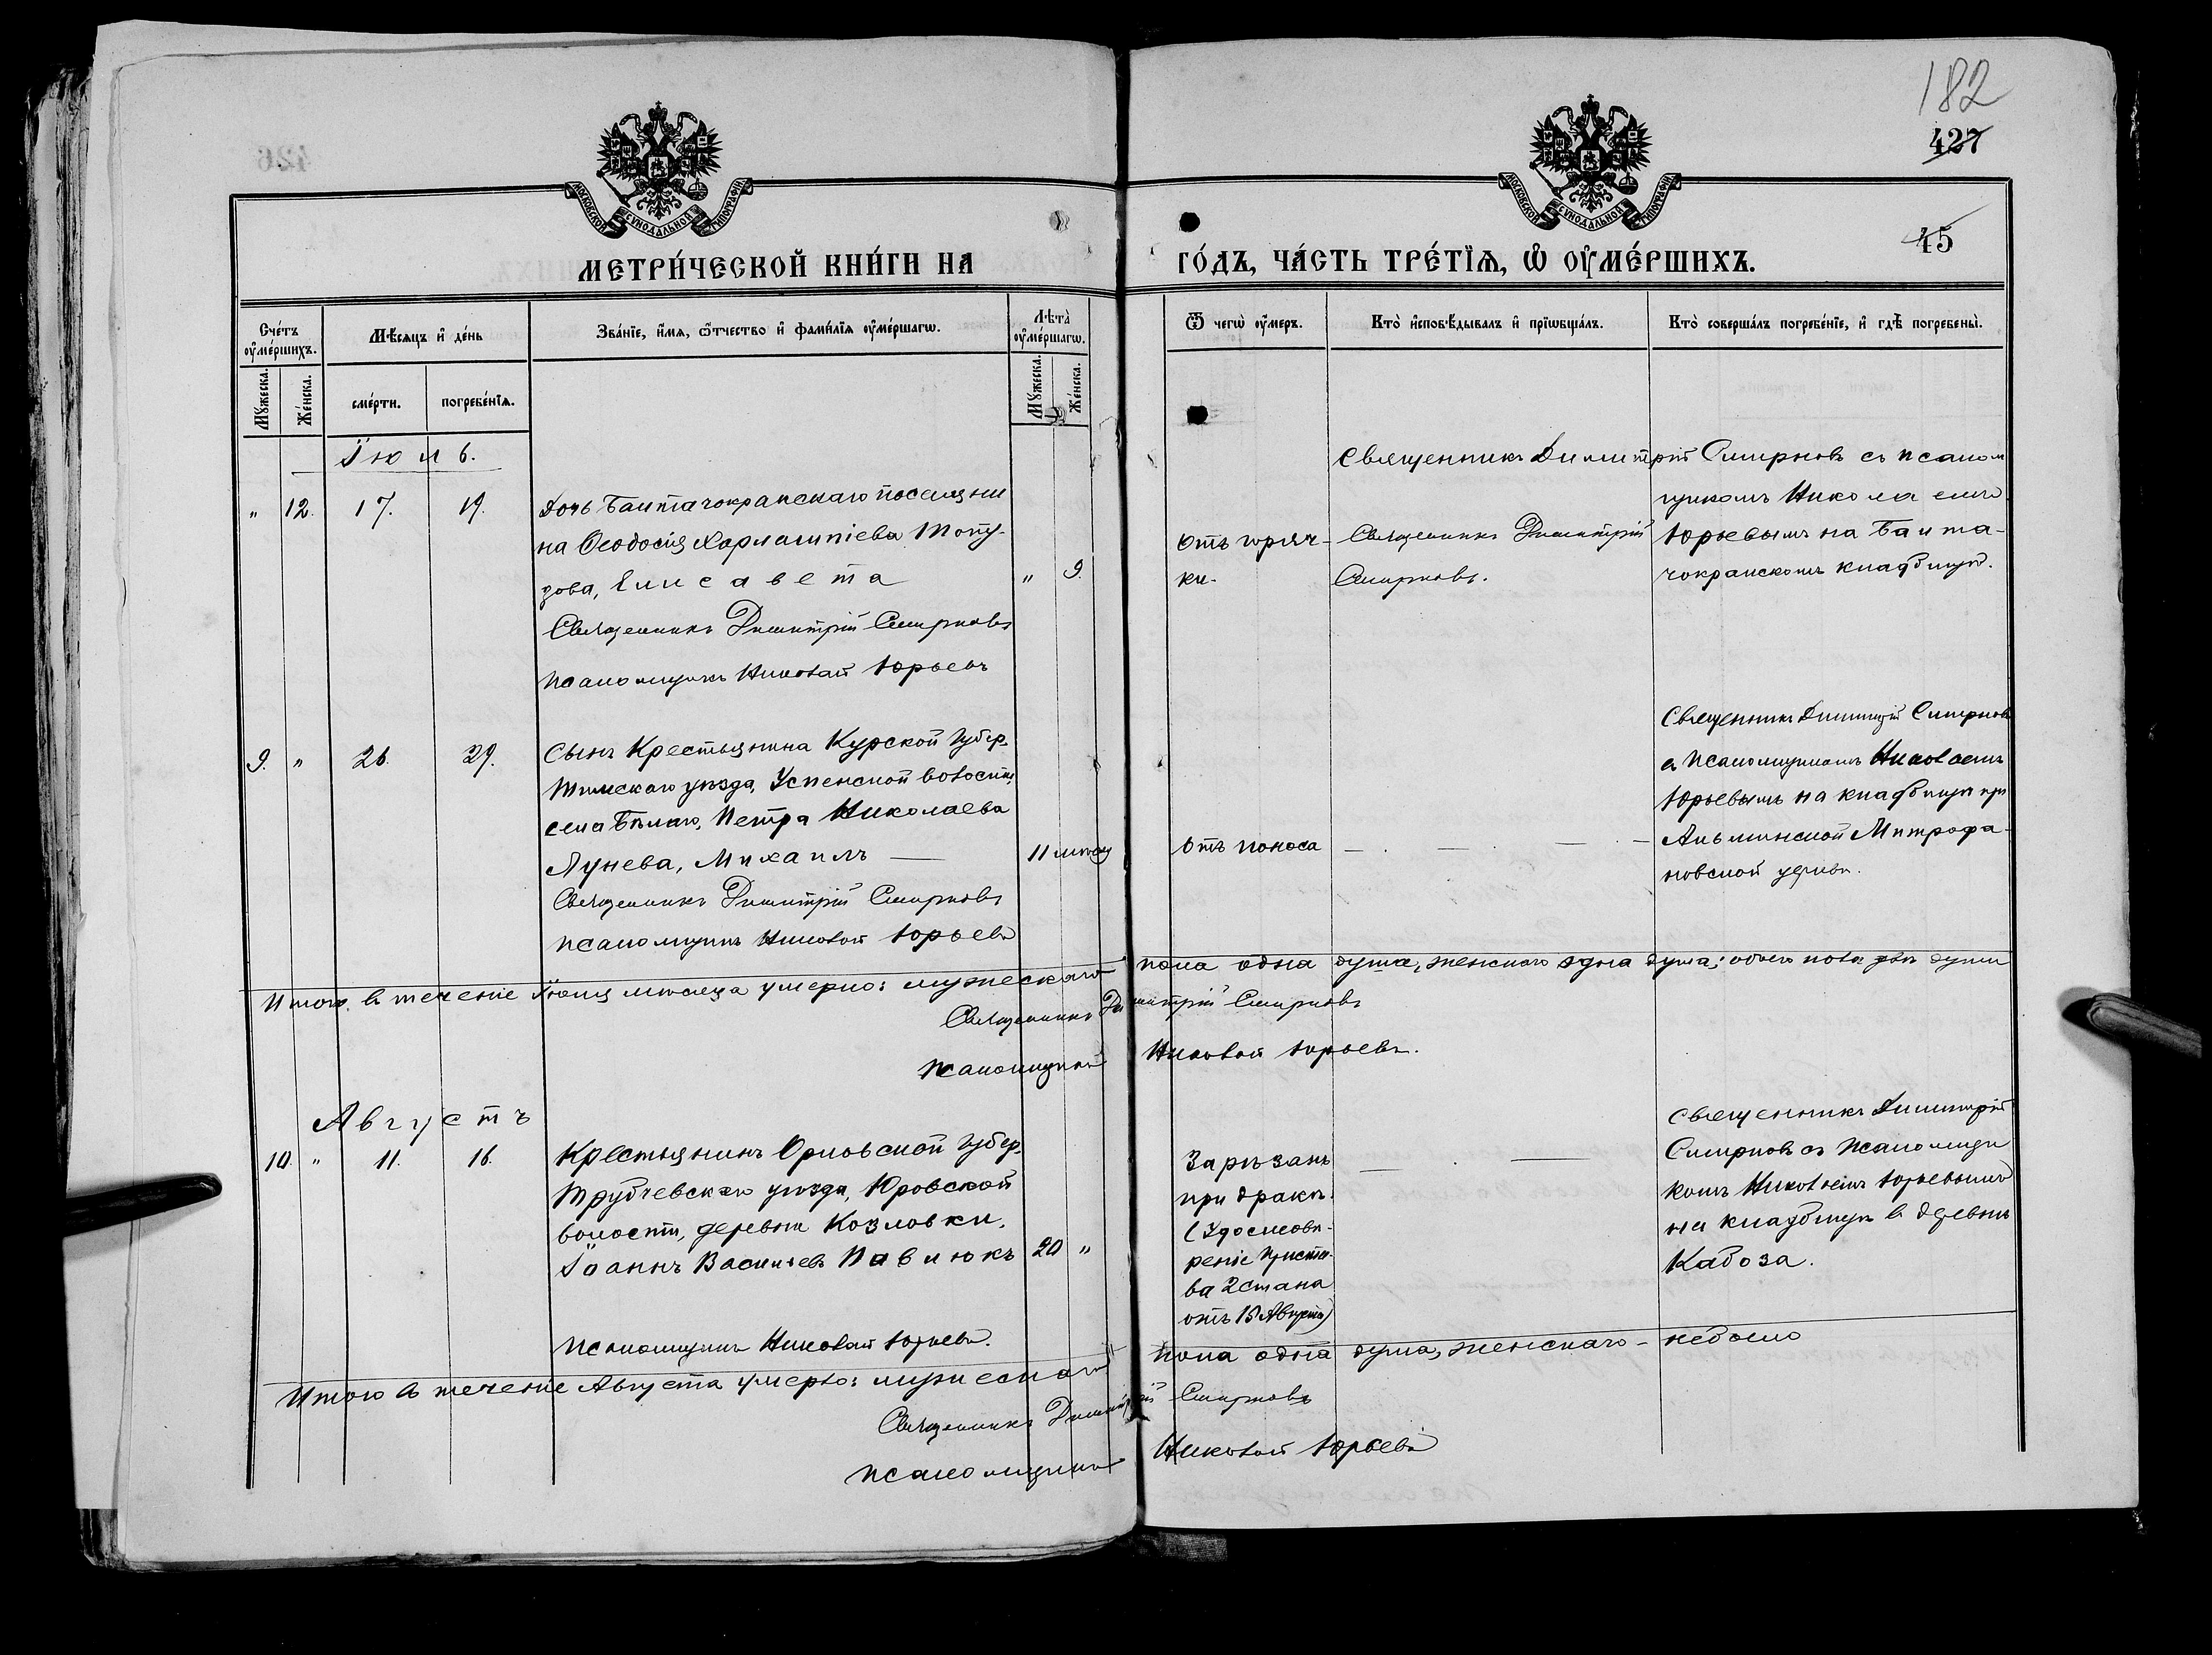 182
427
45
МОСКОВСКОЙ СѴНОДАЛЬНОЙ ТИПОГРАФІИ
МОСКОВСКОЙ СѴНОДАЛЬНОЙ ТИПОГРАФІИ
МЕТРИ́ЧЕСКОЙ КНИ́ГИ НА ГО́ДЪ, ЧА́СТЬ ТРЕ́ТЇѦ, Ѡ҆ ОУ҆МЕ́РШИХЪ.
Сче́тъ оу҆ме́ршихъ.
Мѣ́сяцъ и҆ де́нь
Зва́нїе, и҆́мя, ѻ҆́тчество и҆ фами́лїя оу҆ме́ршагѡ.
Лѣта̀ оу҆ме́ршагѡ.
Ѿ чегѡ̀ оу҆́меръ.
Кто̀ и҆сповѣ́дывалъ и҆ прїѡбща́лъ.
Кто̀ соверша́лъ погребе́нїе, и҆ гдѣ̀ погребены̀.
Му́жеска.
Же́нска.
сме́рти.
погребе́нїя.
Му́жеска.
Же́нска.
Іюль.
" 12. 17. 19.
Дочь Баитачокракскаго поселяни
на Ѳеодосія Харлампіева Топу-
зова, Елисавета
" 9.
Священникъ Димитрій Смирновъ
Псаломщикъ Николай Юрьевъ
Отъ горяч-
ки.
Священникъ Димитрій
Смирновъ.
Священникъ Димитрій Смирновъ съ псалом
щикомъ Николаемъ
Юрьевымъ на Баита-
чокракскомъ кладбищѣ.
9. " 26. 29.
Сынъ Крестьянина Курской губер.
Тимскаго уѣзда, Успенской волости,
села Бѣлаго, Петра Николаева
Лунева, Михаилъ —
11 мѣсяц
Священникъ Димитрій Смирновъ
Псаломщикъ Николай Юрьевъ
Отъ поноса
Священникъ Димитрій Смирновъ
съ Псаломщикомъ Николаемъ
Юрьевымъ на кладбищѣ при
Альминской Митрофа-
новской церкви.
Итого въ теченіе Іюля мѣсяца умерло: мужескаго пола одна душа, женскаго одна душа; обоего пола двѣ души
Священникъ Димитрій Смирновъ
Псаломщикъ Николай Юрьевъ.
Августъ
10. " 11. 16.
Крестьянинъ Орловской губер.
Трубчевскаго уѣзда, Юровской
волости, деревни Козловки,
Іоаннъ Васильевъ Павлюкъ
20 "
Псаломщикъ Николай Юрьевъ.
Зарѣзанъ
при дракѣ.
(Удостовѣ-
реніе Приста-
ва 2 стана
отъ 15 Августа)
Священникъ Димитрій
Смирновъ съ Псаломщи
комъ Николаемъ Юрьевымъ
на кладбищѣ въ деревнѣ
Кабоза.
Итого въ теченіе Августа умерло: мужескаго пола одна душа, женскаго - небыло
Священникъ Димитрій Смирновъ
Псаломщикъ Николай Юрьевъ